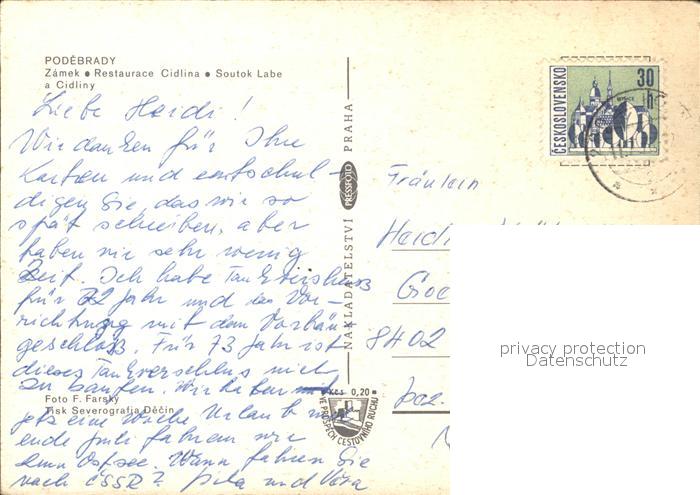 PODĚBRADY
Zámek • Restaurace Cidlina • Soutok Labe
a Cidliny
Liebe Heidi!
Wir danken für Ihre
Karten und entschul-
digen Sie, das wir so
spät schreiben, aber
haben wir sehr wenig
Zeit. Ich habe Tankverschluss
für 72 Jahr und das Vor-
richtung mit dem Vorhän
geschloß. Für 73 Jahr ist
dieses Tankverschluss nicht
zu kaufen. Wir haben
jetz eine Woche Urlaub
ende Juli fahren wir
zum Ostsee. Wann fahren Sie
nach ČSSR? und Věra
Foto F. Farský
Tisk Severografia Děčín
NAKLADATELSTVÍ PRESSFOTO PRAHA
Kčs 0,20
VE PROSPĚCH CESTOVNÍHO RUCHU
ČESKOSLOVENSKO
30
h
Fräulein
Heidi
8402
privacy protection
Datenschutz